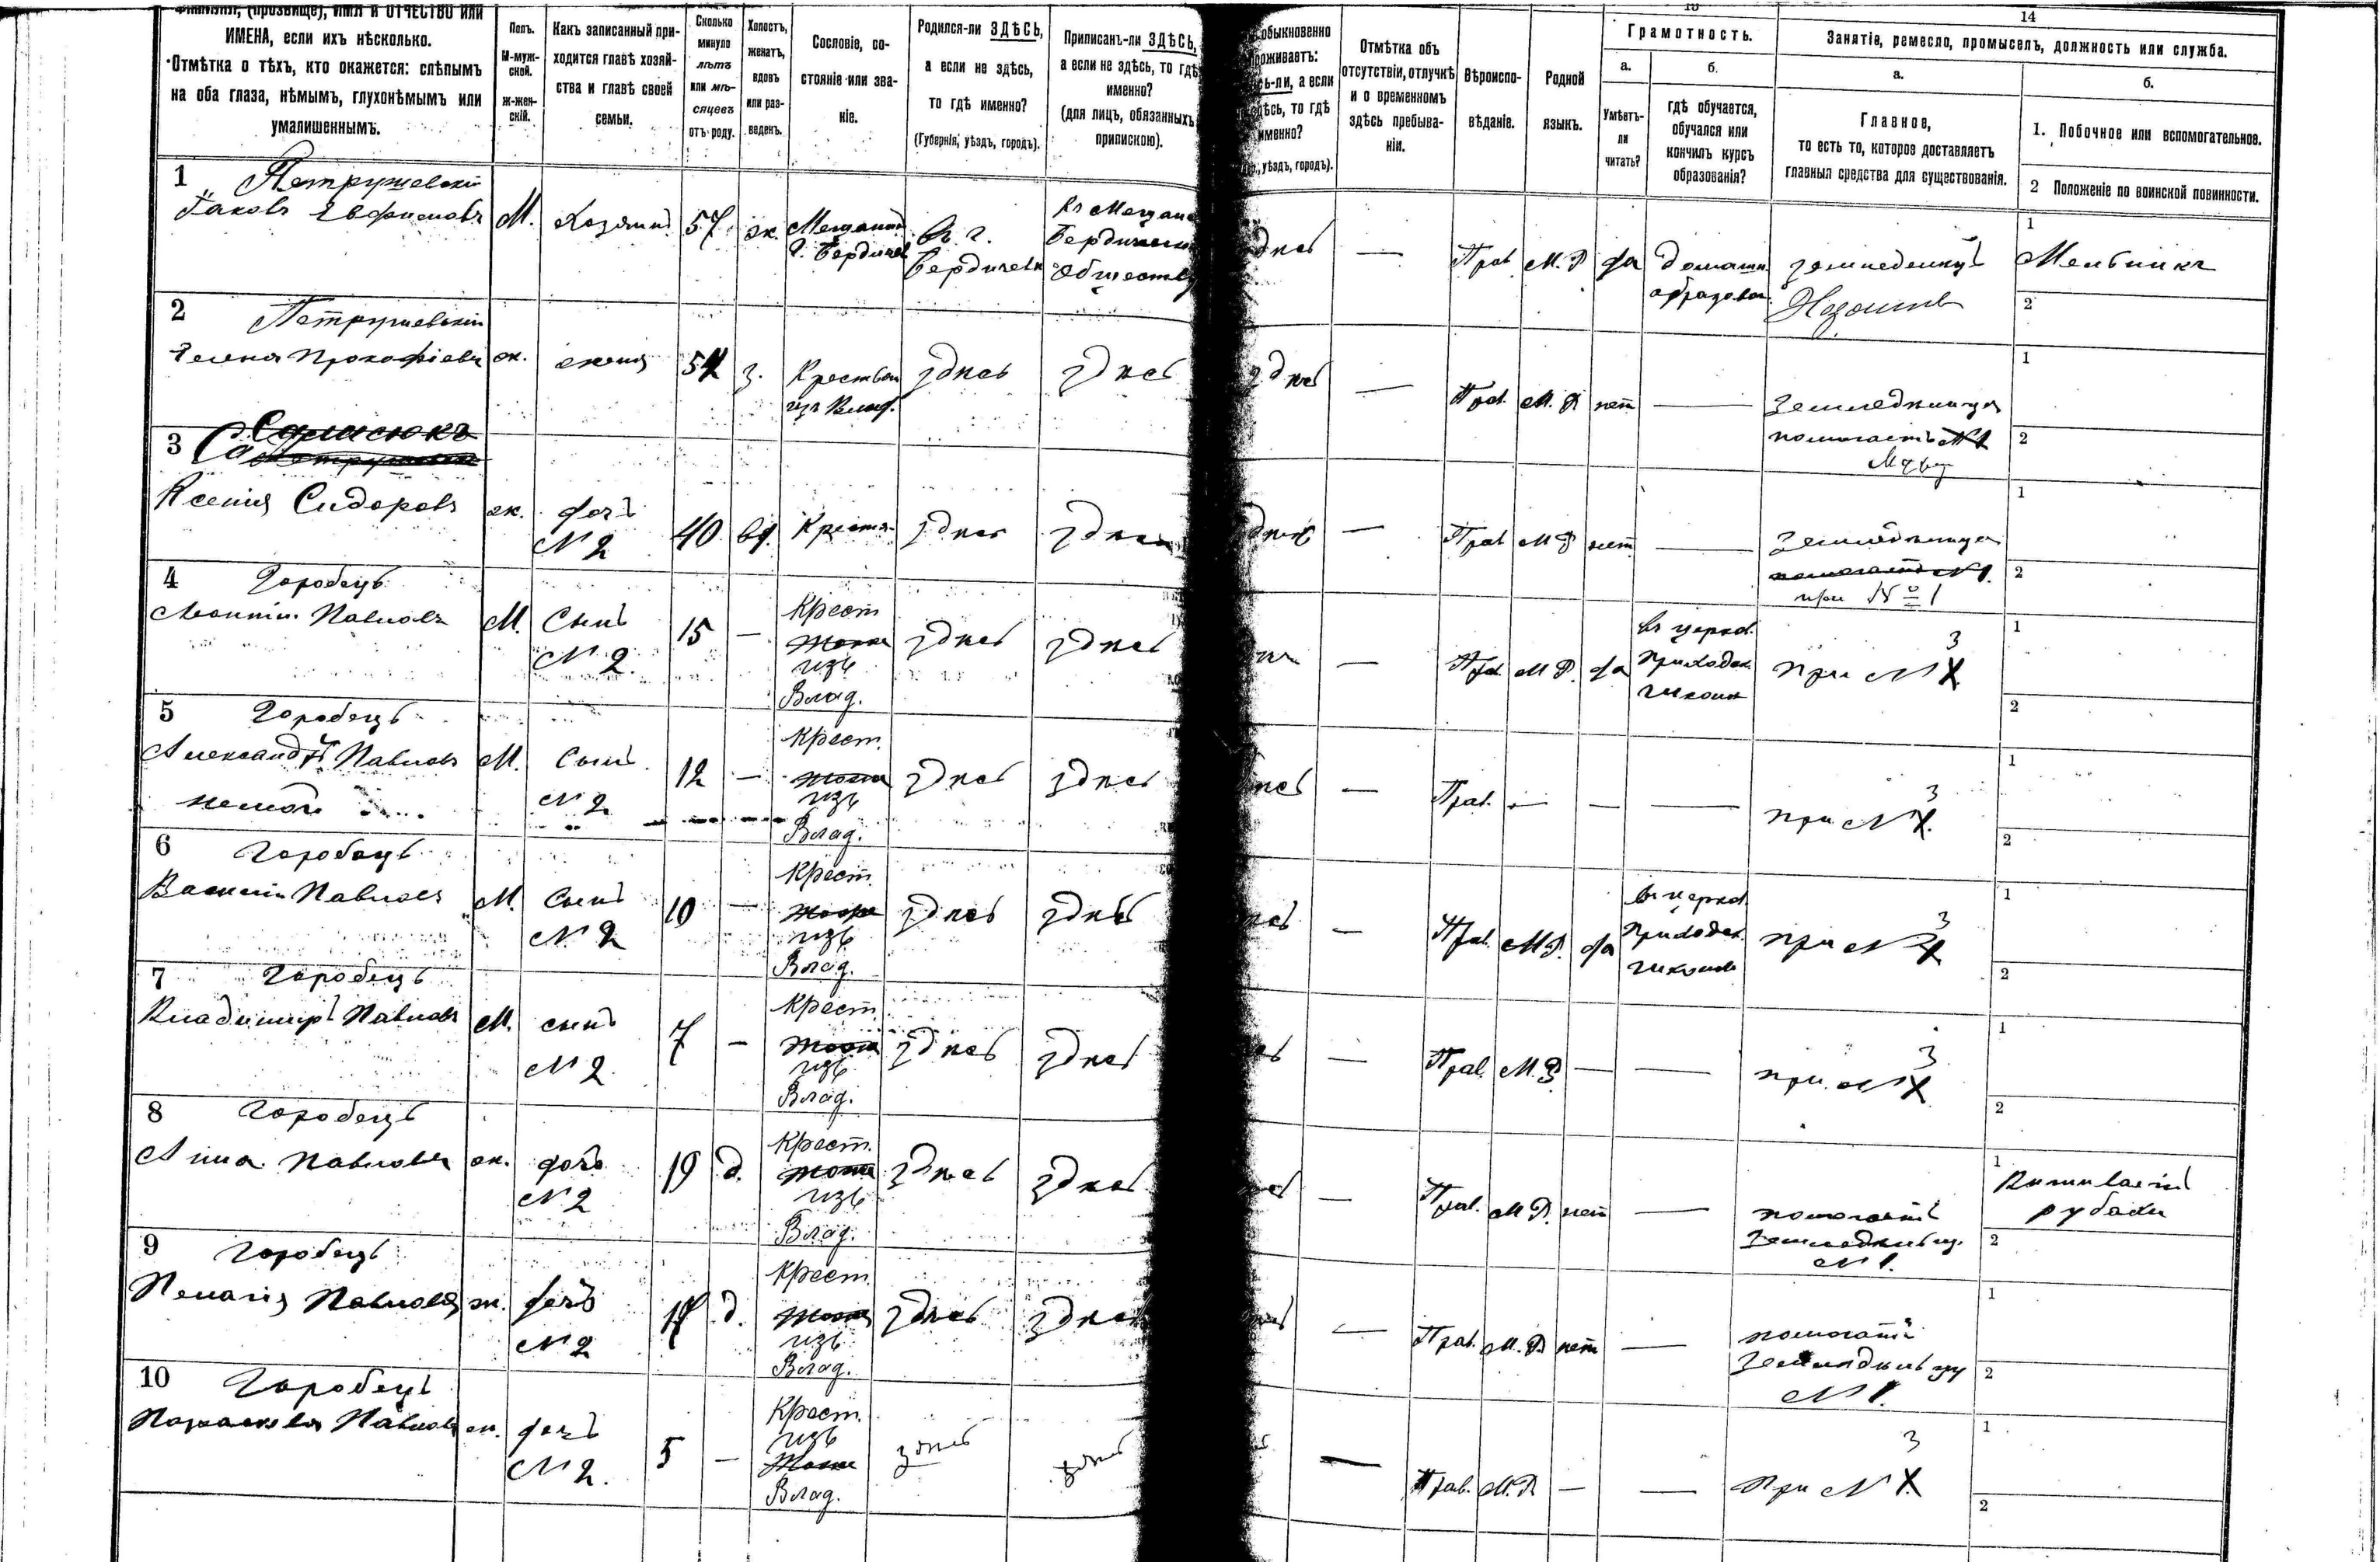 ФАМИЛІЯ, (прозвище), ИМЯ и ОТЧЕСТВО или
ИМЕНА, если ихъ нѣсколько.
Отмѣтка о тѣхъ, кто окажется: слѣпымъ
на оба глаза, нѣмымъ, глухонѣмымъ или
умалишеннымъ.
Полъ.
М-муж-
ской.
ж-жен-
скій.
Какъ записанный при-
ходится главѣ хозяй-
ства и главѣ своей
семьи.
Сколько
минуло
лѣтъ
или мѣ-
сяцевъ
отъ роду.
Холостъ,
женатъ,
вдовъ
или раз-
веденъ.
Сословіе, со-
стояніе или зва-
ніе.
Родился-ли ЗДѢСЬ,
а если не здѣсь,
то гдѣ именно?
(Губернія, уѣздъ, городъ).
Приписанъ-ли ЗДѢСЬ,
а если не здѣсь, то гдѣ
именно?
(для лицъ, обязанныхъ
припискою).
обыкновенно
проживаетъ:
а если
здѣсь, то гдѣ
именно?
уѣздъ, городъ).
Отмѣтка объ
отсутствіи, отлучкѣ
и о временномъ
здѣсь пребыва-
ніи.
Вѣроиспо-
вѣданіе.
Родной
языкъ.
Грамотность.
а.
Умѣетъ-
ли
читать?
б.
гдѣ обучается,
обучался или
кончилъ курсъ
образованія?
14
Занятіе, ремесло, промыселъ, должность или служба.
а.
Главное,
то есть то, которое доставляетъ
главныя средства для существованія.
б.
1. Побочное или вспомогательное.
2 Положеніе по воинской повинности.
1 Петрушевскій
Яковъ Евфимовъ М. Хозяинъ 57 ж. Мещанинъ г. Бердичев въ г. Бердичевѣ Бердичевск Обществу
— Прав М. Р да домашн. образован. Хозяинъ
1 Мельникъ
2
2 Петрушевскій
Елена Прокофіева ж. жена 54 з. Крестьян изъ Влад. здѣсь здѣсь
здѣсь — Прав. М. Р нет — помогаетъ
1
2
3 Самсюкъ
Ксенія Сидоров ж. дочь N 2 40 вд. Крестя. здѣсь здѣсь
— Прав М Р нет — при № 1
1
2
4 Горобецъ
Леонтій Павлов М. Сынъ N 2. 15 — Крест изъ Влад. здѣсь здѣсь
— Прав М Р. да въ церков. приходск. школи при N 3
1
2
5 Горобецъ
Александръ Павлов М. Сынъ N 2 12 — Крест. изъ Влад. здѣсь здѣсь
немой
— Прав. — — — при N 3
1
2
6 Горобецъ
Василій Павлов М. Сынъ N 2 10 — Крест. изъ Влад. здѣсь здѣсь
— Прав. М.Р. да въ церков. приходск. школи при N 3
1
2
7 Горобецъ
Владимиръ Павлов М. сынъ N 2 7 — Крест. изъ Влад. здѣсь здѣсь
— Прав. М.Р — — при N 3
1
2
8 Горобецъ
Анна Павлова ж. дочь N 2 19 д. Крест. изъ Влад. здѣсь здѣсь
— Прав. М Р. нет — помогаетъ N 1.
1 Вишиваетъ рубахи
2
9 Горобецъ
Пелагія Павлова ж. дочь N 2 д. Крест. изъ Влад. здѣсь здѣсь
— Прав. М. Р. нет — помогаетъ N 1.
1
2
10 Горобецъ
Параскева Павлова ж. дочь N 2. 5 — Крест. изъ Влад. здѣсь здѣсь
— Прав. М.Р — — При N 3
1
2